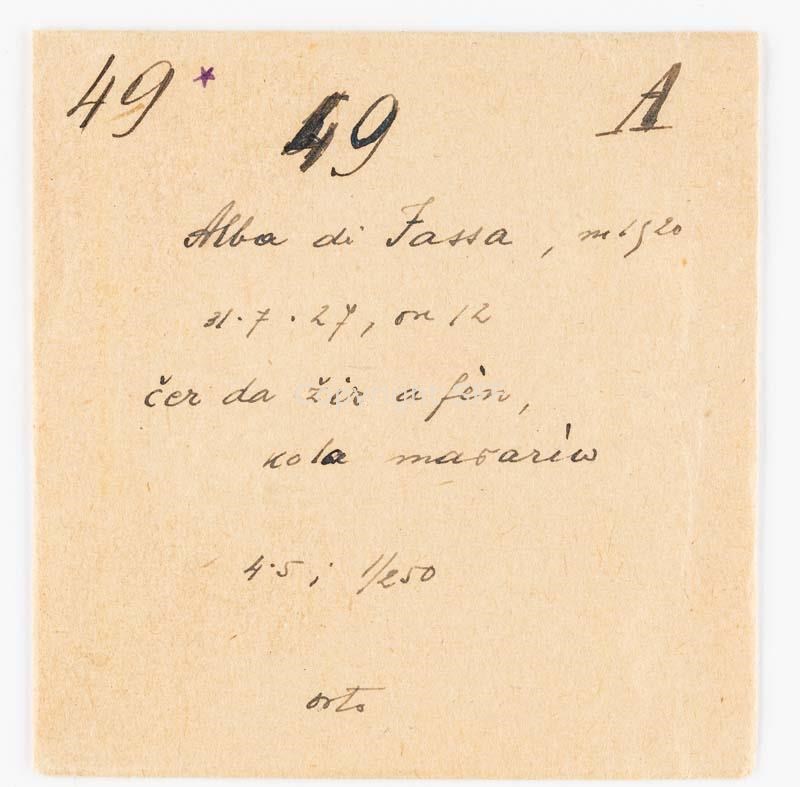 49 * 49 A
Alba di Fassa, m 1520
31.7.27, ore 12
čer da žir a fèn,
kola
4.5; 1/250
orto